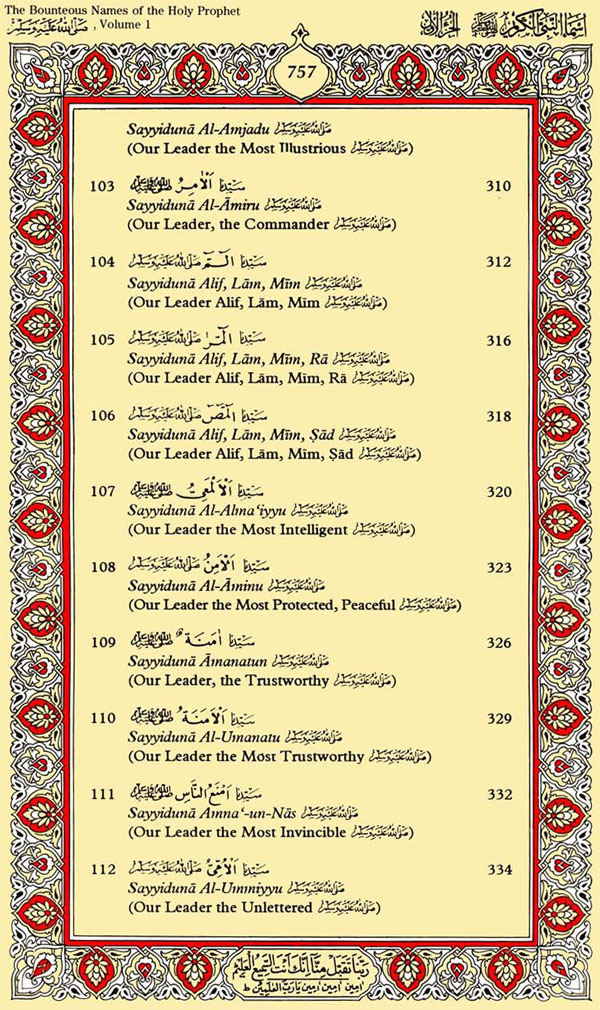 The Bounteous Names of the Holy Prophet
ﷺ, Volume 1
اسماء النبی الکریم ﷺ الجزء الاول
757
Sayyidunā Al-Amjadu ﷺ
(Our Leader the Most Illustrious ﷺ)
103 سَيِّدُنَا اَلْاٰمِرُ ﷺ 310
Sayyidunā Al-Āmiru ﷺ
(Our Leader, the Commander ﷺ)
104 سَيِّدُنَا الٓمّٓ ﷺ 312
Sayyidunā Alif, Lām, Mīm ﷺ
(Our Leader Alif, Lām, Mīm ﷺ)
105 سَيِّدُنَا الٓمّٓرٰ ﷺ 316
Sayyidunā Alif, Lām, Mīm, Rā ﷺ
(Our Leader Alif, Lām, Mīm, Rā ﷺ)
106 سَيِّدُنَا الٓمّٓصٓ ﷺ 318
Sayyidunā Alif, Lām, Mīm, Ṣād ﷺ
(Our Leader Alif, Lām, Mīm, Ṣād ﷺ)
107 سَيِّدُنَا اَلْاَلْمَعِيُّ ﷺ 320
Sayyidunā Al-Alma‘iyyu ﷺ
(Our Leader the Most Intelligent ﷺ)
108 سَيِّدُنَا اَلْاٰمِنُ ﷺ 323
Sayyidunā Al-Āminu ﷺ
(Our Leader the Most Protected, Peaceful ﷺ)
109 سَيِّدُنَا اٰمَنَةٌ ﷺ 326
Sayyidunā Āmanatun ﷺ
(Our Leader, the Trustworthy ﷺ)
110 سَيِّدُنَا اَلْاُمَنَةُ ﷺ 329
Sayyidunā Al-Umanatu ﷺ
(Our Leader the Most Trustworthy ﷺ)
111 سَيِّدُنَا اَمْنَعُ النَّاسِ ﷺ 332
Sayyidunā Amna‘-un-Nās ﷺ
(Our Leader the Most Invincible ﷺ)
112 سَيِّدُنَا اَلْاُمِّيُّ ﷺ 334
Sayyidunā Al-Ummiyyu ﷺ
(Our Leader the Unlettered ﷺ)
رَبَّنَا تَقَبَّلْ مِنَّا اِنَّكَ اَنْتَ السَّمِيعُ الْعَلِيمُ
اٰمِين اٰمِين اٰمِين يَا رَبَّ الْعٰلَمِينَ ط